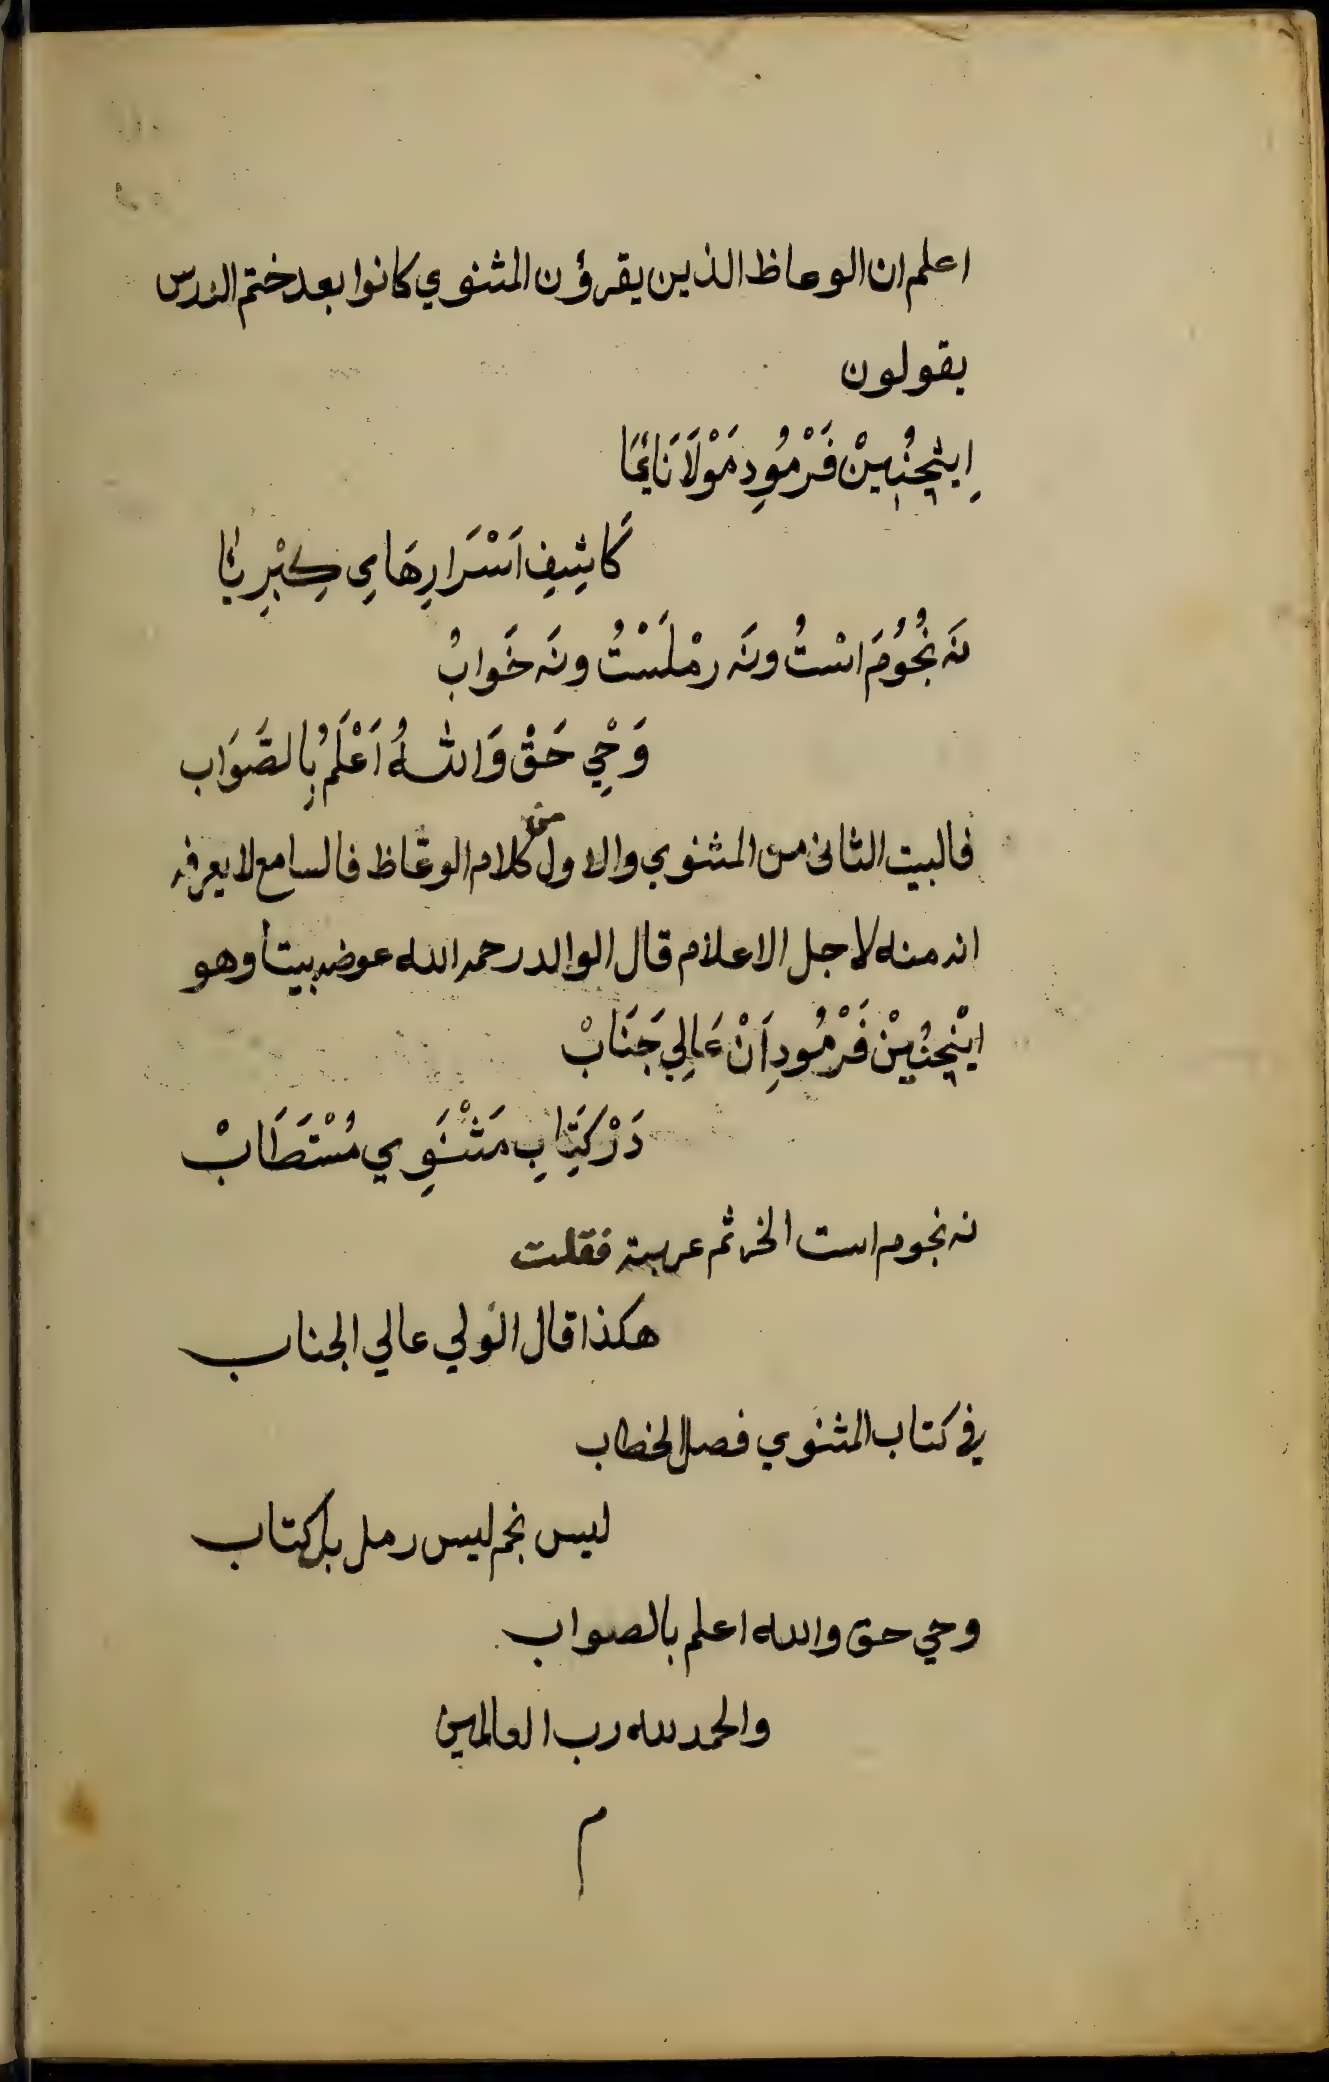 اعلم ان الوعاظ الذين يقرؤن المثنوي كانوا بعد ختم الدرس
يقولون
اِينْچُنِينْ فَرْمُودِ مَوْلَانَايُمَا
كَاشِفِ اَسْرَارِهَايِ كِبْرِيَا
نَه نُجُومَ اسْتُ ونَه رمْلَسْتُ ونَه خَوابْ
وَحْيِ حَقْ وَاللهُ اَعْلَمُ بِالصَّوَاب
فالبيت الثانى من المثنوي والاول من كلام الوعّاظ فالسامع لا يعرفه
انه منه لاجل الاعلام قال الوالد رحمه الله عوضه بيتا وهو
ايْنچُنِيْن فَرْمُودِ اَنْ عَالِي جَنَابْ
دَرْ كِتَابِ مَثْنَوِي مُسْتَطَابْ
نه نجوم است الخ ثم عربيته فقلت
هكذا قال الولي عالي الجناب
في كتاب المثنوي فصل الخطاب
ليس نجم ليس رمل بل كتاب
وحي حق والله اعلم بالصواب
والحمد لله رب العالمين
م